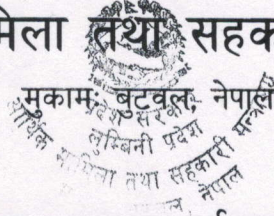 मिला तथा सहक
मुकामः बुटवल, नेपाल
प्रदेश सरकार
लुम्बिनी प्रदेश
आर्थिक मामिला तथा सहकारी मन्त्रालय
नेपाल